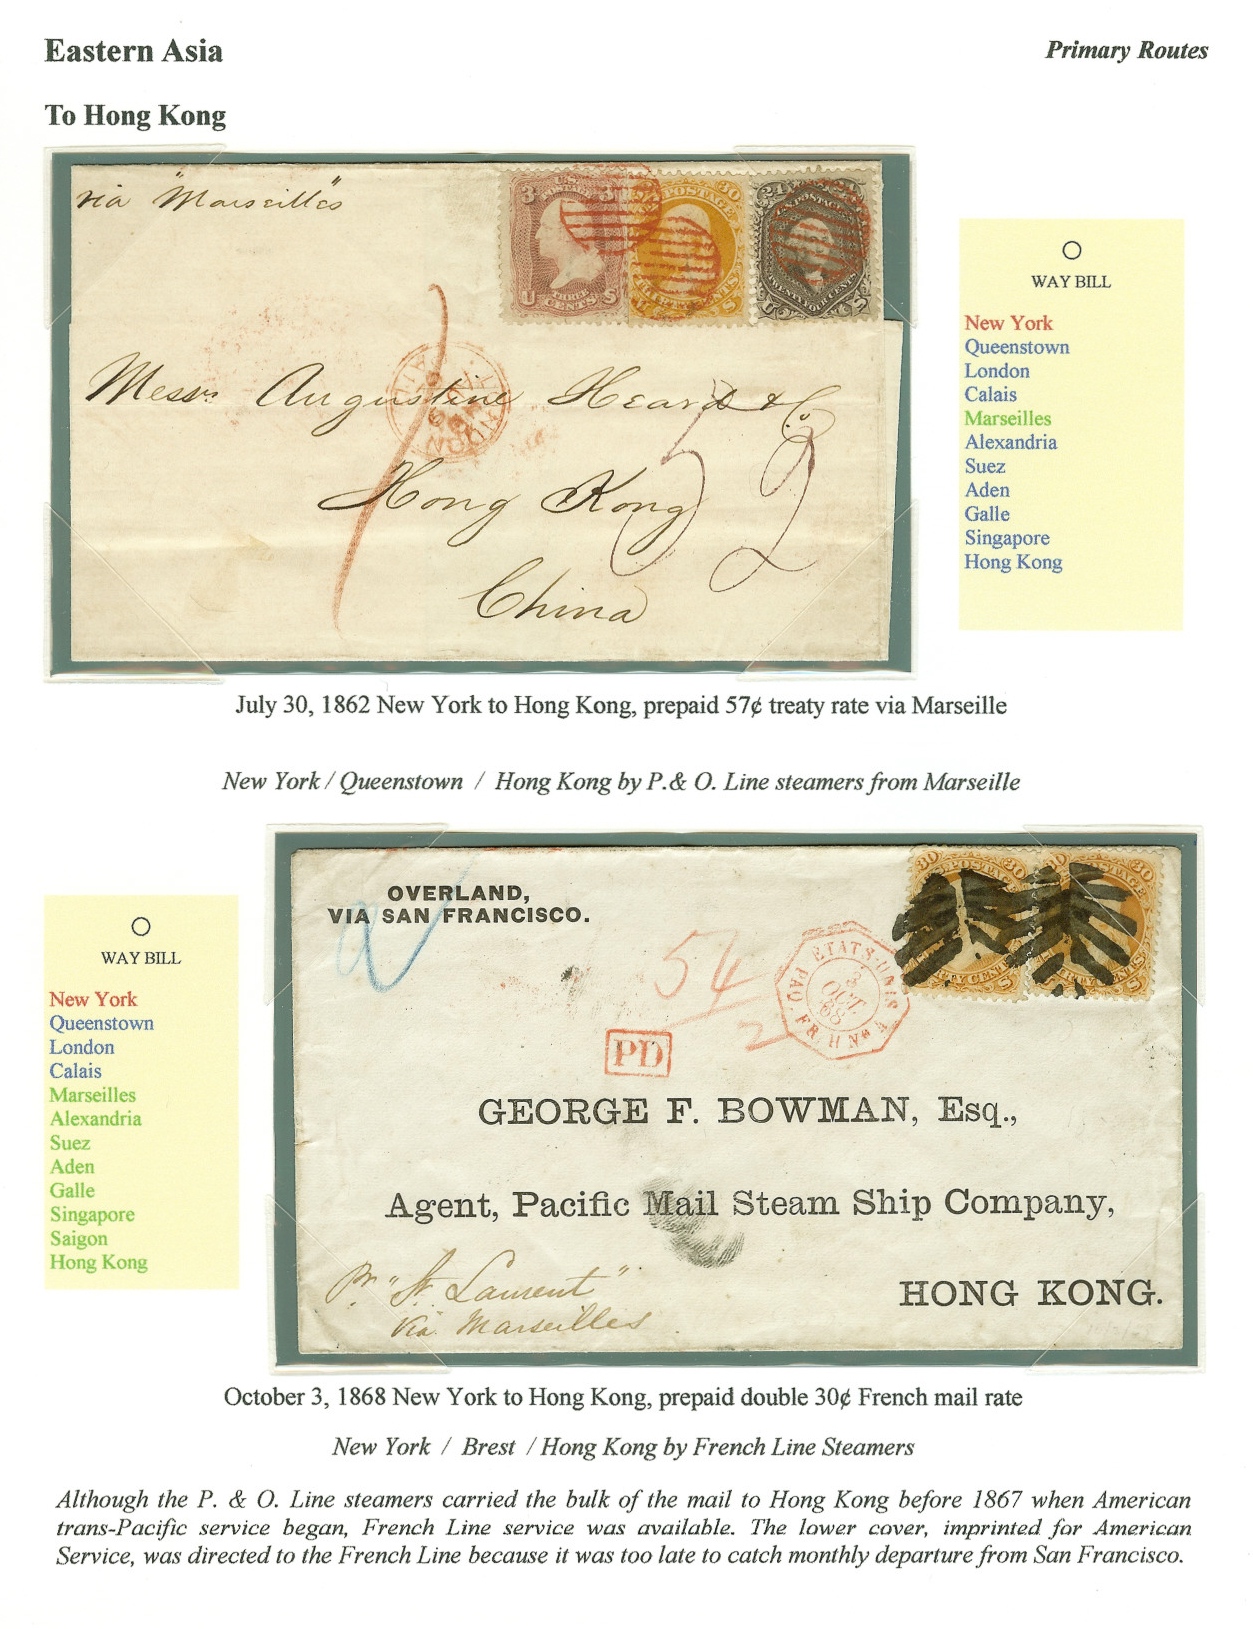 Eastern Asia
Primary Routes
To Hong Kong
via "Marseilles"
3 3
U.S. POSTAGE
U THREE CENTS S
30
POSTAGE
24
U.S. POSTAGE
TWENTY FOUR CENTS
U S
LONDON
PAID
Messrs Augustine Heard & Co.
52
Hong Kong
China
WAY BILL
New York
Queenstown
London
Calais
Marseilles
Alexandria
Suez
Aden
Galle
Singapore
Hong Kong
July 30, 1862 New York to Hong Kong, prepaid 57¢ treaty rate via Marseille
New York / Queenstown / Hong Kong by P.& O. Line steamers from Marseille
WAY BILL
New York
Queenstown
London
Calais
Marseilles
Alexandria
Suez
Aden
Galle
Singapore
Saigon
Hong Kong
OVERLAND,
VIA SAN FRANCISCO.
2
54
2
ETATS-UNIS
PAQ. FR. H Nº A
3
OCT.
68
30 POSTAGE 30
30 POSTAGE 30
PD
GEORGE F. BOWMAN, Esq.,
Agent, Pacific Mail Steam Ship Company,
HONG KONG.
Pr "St Laurent"
via Marseilles
October 3, 1868 New York to Hong Kong, prepaid double 30¢ French mail rate
New York / Brest / Hong Kong by French Line Steamers
Although the P. & O. Line steamers carried the bulk of the mail to Hong Kong before 1867 when American
trans-Pacific service began, French Line service was available. The lower cover, imprinted for American
Service, was directed to the French Line because it was too late to catch monthly departure from San Francisco.